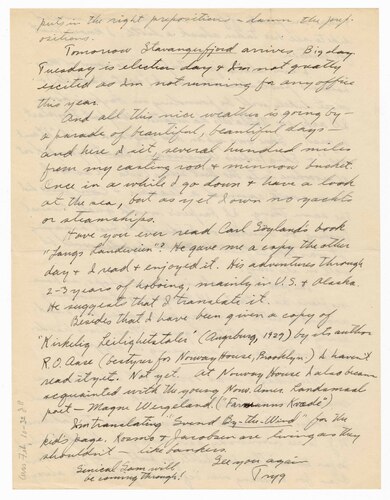 puts in the right prepositions – damn the prep-
ositions.
Tomorrow Stavangerfjord arrives. Big day.
Tuesday is election day & I'm not greatly
excited as I'm not running for any office
this year.
And all this nice weather is going by –
a parade of beautiful, beautiful days –
and here I sit, several hundred miles
from my casting rod & minnow bucket.
Once in a while I go down & have a look
at the sea, but as yet I own no yachts
or steamships.
Have you ever read Carl Søyland's book
"Langs Landeveien"? He gave me a copy the other
day & I read & enjoyed it. His adventures through
2-3 years of hoboing, mainly in U.S. & Alaska
He suggests that I translate it.
Besides that I have been given a copy of
'Kirkelig Leilighetstaler' (Augsburg, 1929) by its author
R.O. Aase (bestyrer for Norway House, Brooklyn.) I haven't
read it yet. Not yet. At Norway House I also became
acquainted with the young Norw. Amer. Landsmaal
poet – Magne Wergeland. (
I'm translating "Svend By-the-Wind" for the
kids page. & Jacobsen are living as they
shouldn't – like bankers.
See you again
Tryg
will
be coming through!